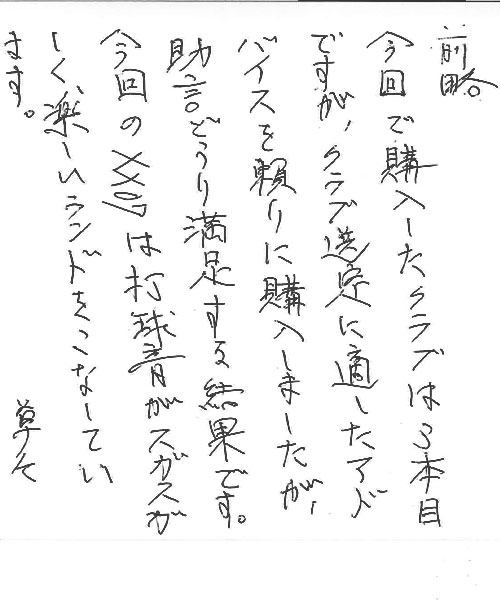 前略。
今回で購入したクラブは3本目
ですが、クラブ選定に適したアド
バイスを頼りに購入しましたが、
助言どうり満足する結果です。
今回のXXIOは打球音がスガスガ
しく、楽しいランドをこなしてい
ます。
草々